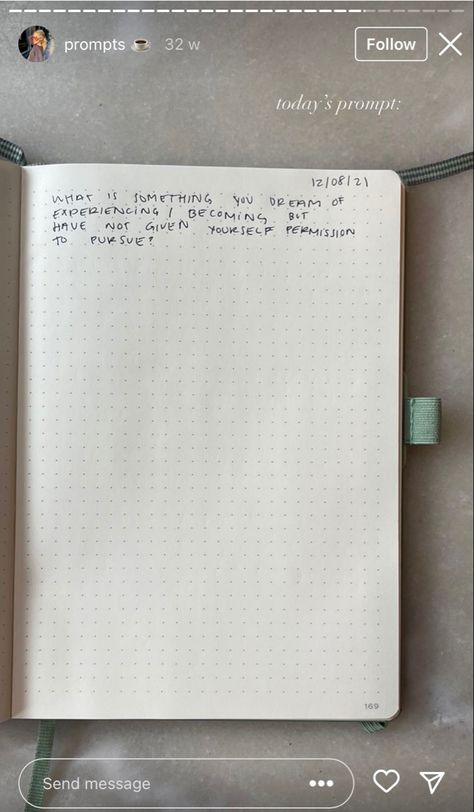 prompts ☕ 32 w
Follow
today's prompt:
12/08/21
WHAT IS SOMETHING YOU DREAM OF
EXPERIENCING / BECOMING BUT
HAVE NOT GIVEN YOURSELF PERMISSION
TO PURSUE?
169
Send message